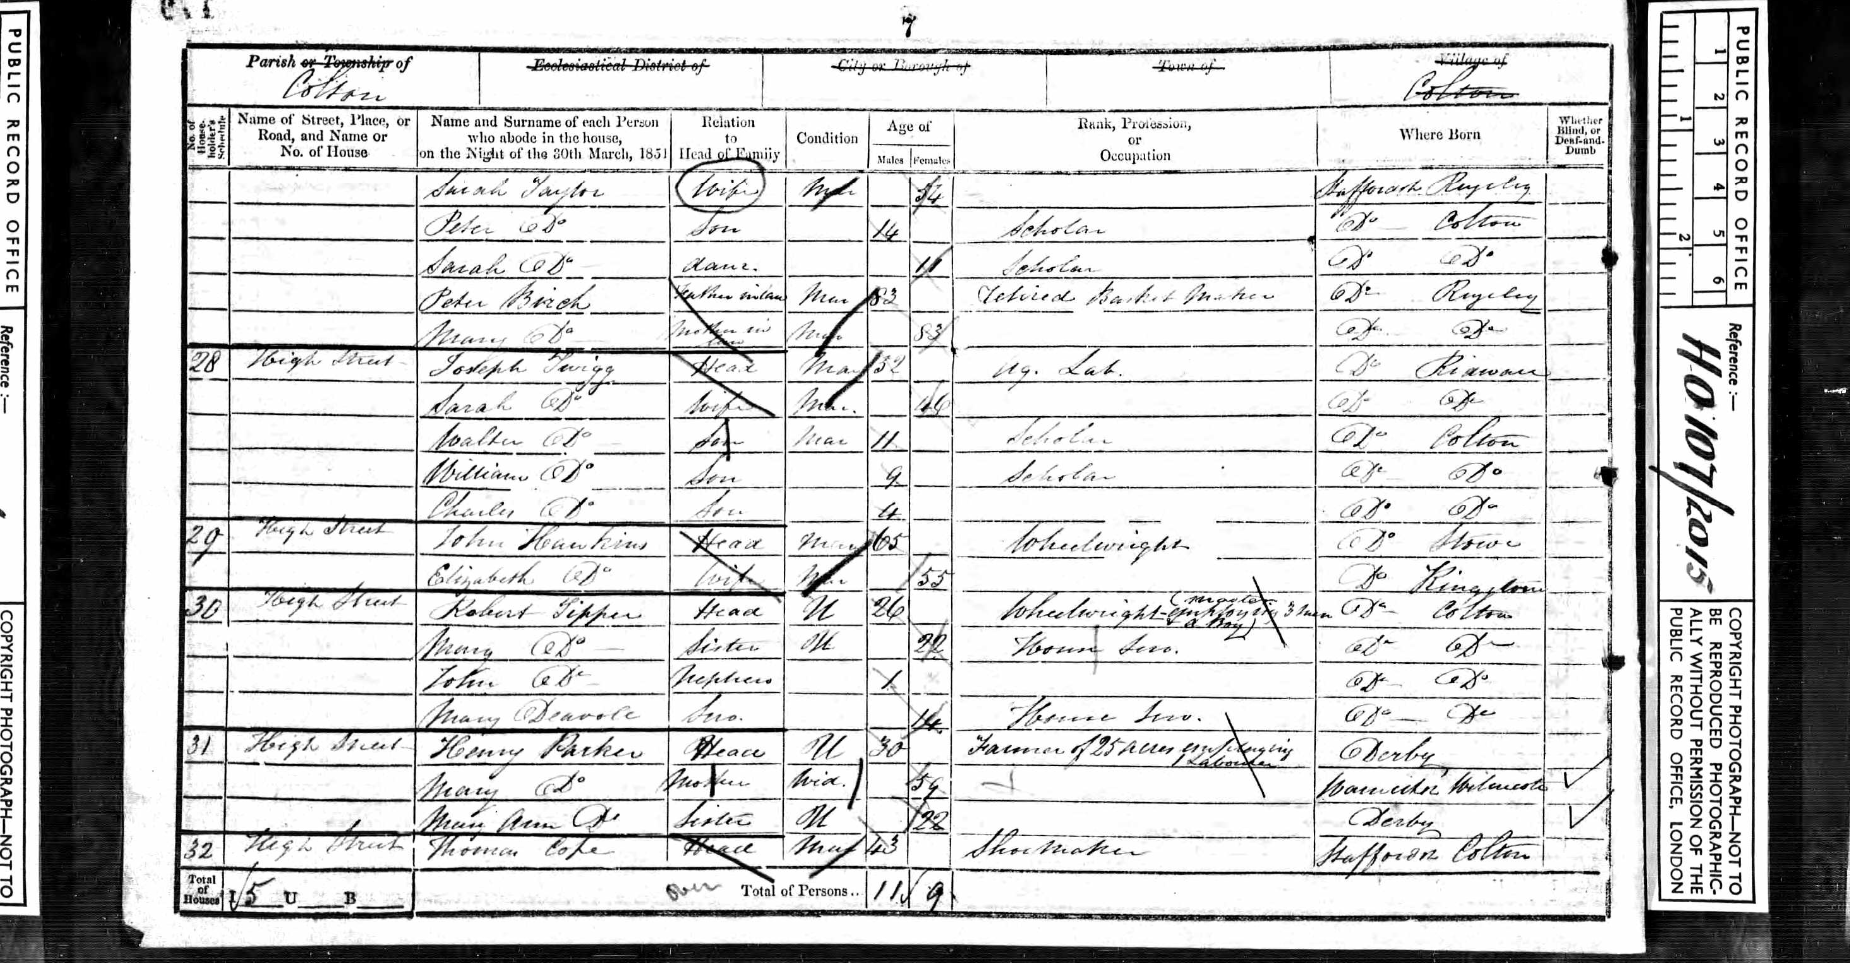 7
Parish or Township of
Colton
Ecclesiastical District of
City or Borough of
Town of
Village of
Colton
No. of House-holder's Schedule
Name of Street, Place, or Road, and Name or No. of House
Name and Surname of each Person who abode in the house, on the Night of the 30th March, 1851
Relation to Head of Family
Condition
Age of
Males
Females
Rank, Profession, or Occupation
Where Born
Whether Blind, or Deaf-and-Dumb
Sarah Taylor Wife Mar 54 Rugeley
Peter Do Son 14 Scholar Do Colton
Sarah Do Daur. 11 Scholar Do Do
Peter Birch Father in law Mar 83 Retired Basket Maker Do Rugeley
Mary Do Mother in law Mar 83 Do Do
28 High Street Joseph Twigg Head Mar 52 Ag. Lab. Do Ridware
Sarah Do Wife Mar. Do Do
Walter Do Son Mar 11 Scholar Do Colton
William Do Son 9 Scholar Do Do
Charles Do Son 4 Do Do
29 High Street John Hawkins Head Mar 65 Wheelwright Do Stowe
Elizabeth Do Wife Mar 55 Do Kingstone
30 High Street Robert Tipper Head U 26 Wheelwright (master employing 3 men & a Boy) Do Colton
Mary Do Sister U 22 House Serv. Do Do
John Do Nephew 1 Do Do
Mary Deavole Serv. 14 House Serv. Do Do
31 High Street Henry Parker Head U 30 Farmer of 25 acres employing 1 Labourer Derby
Mary Do Mother Wid. 59
Mary Ann Do Sister U 22 Derby
32 High Street Thomas Cope Head Mar 43 Shoemaker Colton
Total of Houses
I 5 U B
over
Total of Persons..
11 9
PUBLIC RECORD OFFICE
Reference :—
COPYRIGHT PHOTOGRAPH—NOT TO
PUBLIC RECORD OFFICE
1 2 3 4 5 6
1 2
Reference :—
HO 107/2015
COPYRIGHT PHOTOGRAPH—NOT TO
BE REPRODUCED PHOTOGRAPHIC-
ALLY WITHOUT PERMISSION OF THE
PUBLIC RECORD OFFICE, LONDON